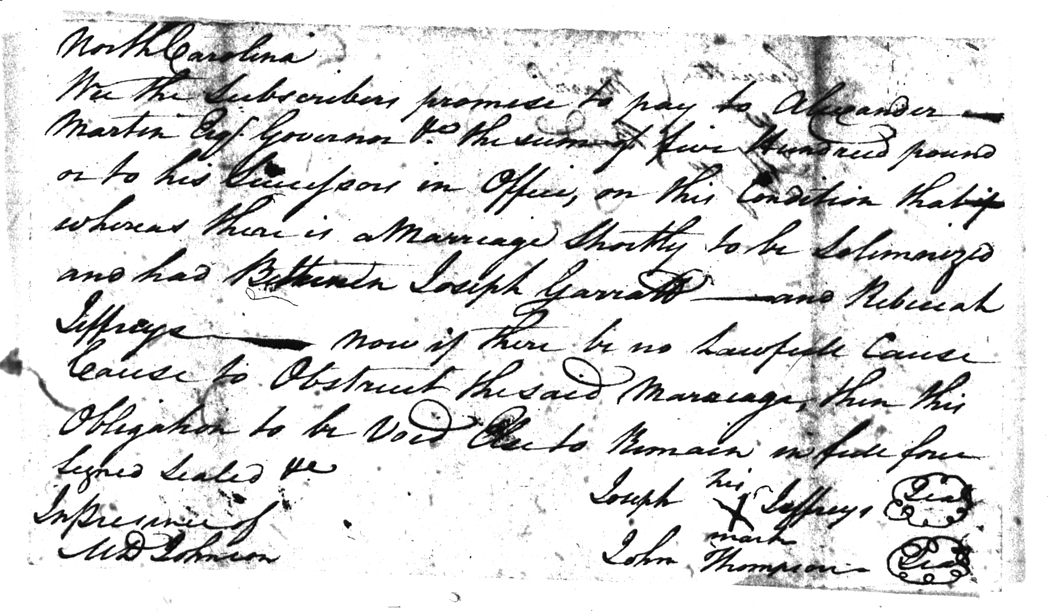 North Carolina
Wee the Subscribers promise to pay to Alexander
Martin Esqr. Governor &c. the sum of five Hundred pound
or to his Successors in Office, on this Condition that if
whereas there is a Marriage Shortly to be Solemnized
and had Between Joseph Garratt — and Rebecah
Jeffreys — now if there be no Lawfull Cause
Cause to Obstruct the said Marreage, then this
Obligation to be Void Else to Remain in full force
Signed Sealed &c
In presence of
MD Johnson
Joseph his X mark Jeffreys Seal
John Thompson Seal